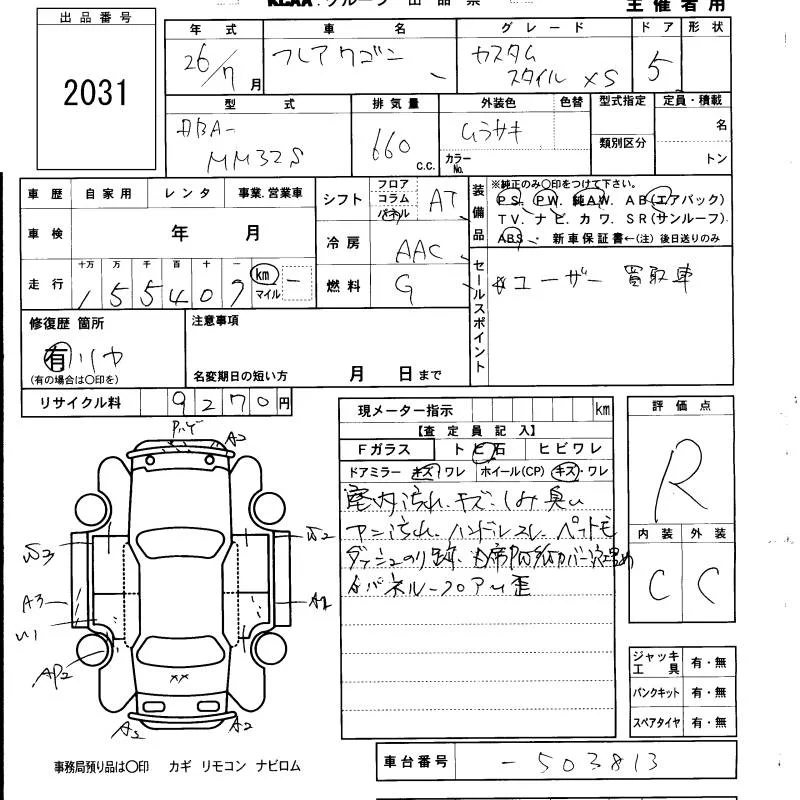 KCAA.グループ 出品票
主催者用
出品番号
2031
年式 車名 グレード ドア 形状
26/7月 フレアワゴン カスタムスタイル XS 5
型式 排気量 外装色 色替 型式指定 定員・積載
ABA-MM32S 660 c.c. ムラサキ カラーNo. 類別区分 名 トン
車歴 自家用 レンタ 事業.営業車
シフト フロア コラム パネル AT
装備品 ※純正のみ〇印をつけて下さい。
PS. PW. 純AW. AB(エアバック)
TV. ナビ. カワ. SR(サンルーフ)
ABS. 新車保証書←(注)後日送りのみ
車検 年 月
冷房 AAC
走行 十万 万 千 百 十 一 km マイル
155409 -
燃料 G
セールスポイント
☆ユーザー買取車
修復歴 箇所
有 リヤ
(有の場合は〇印を)
注意事項
名変期日の短い方 月 日まで
リサイクル料 9270円
現メーター指示 km
【査定員記入】
Fガラス ト ビ石 ヒビワレ
ドアミラー キズ ワレ ホイール(CP) キズ・ワレ
室内汚れ、キズ、しみ、臭い
テン汚れ、ハンドルスレ、ペットモ
ダッシュのり跡、
バネル-フロアU歪
評価点
R
内装 外装
C C
ジャッキ 工具 有・無
パンクキット 有・無
スペアタイヤ 有・無
A2
A3
U1
AP2
A2
事務局預り品は〇印 カギ リモコン ナビロム
車台番号 -503813